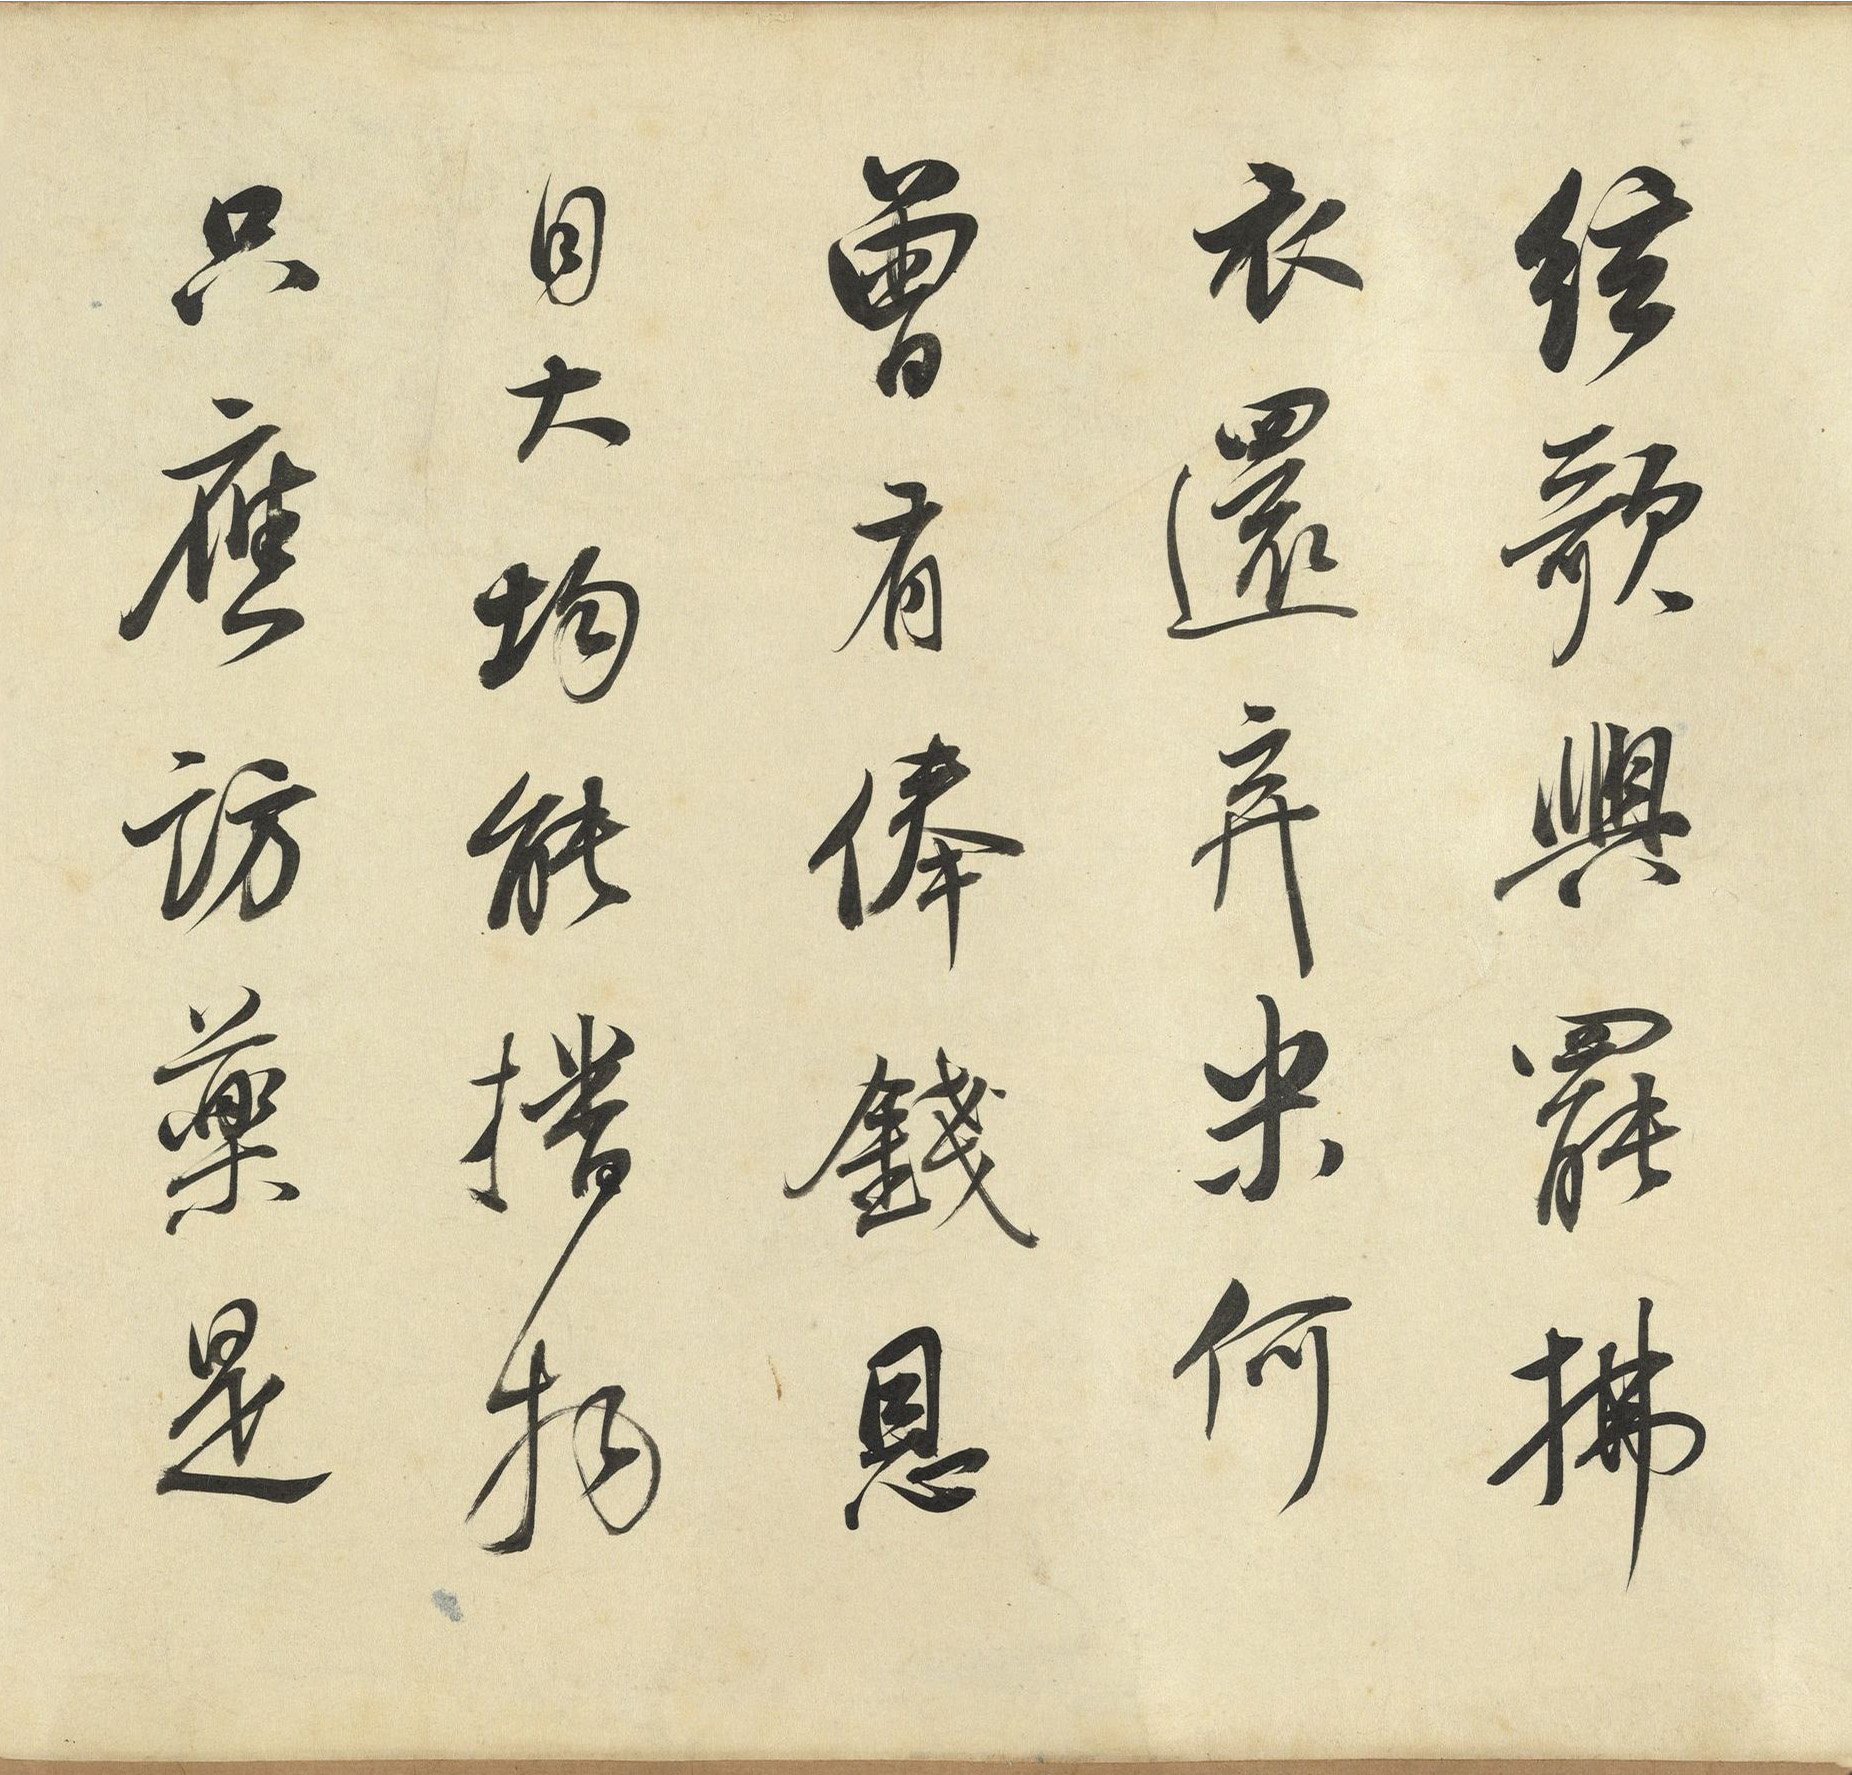 絃歌興罷拂
衣還弃米何
曾有俸錢恩
自大均能措物
只應訪藥是